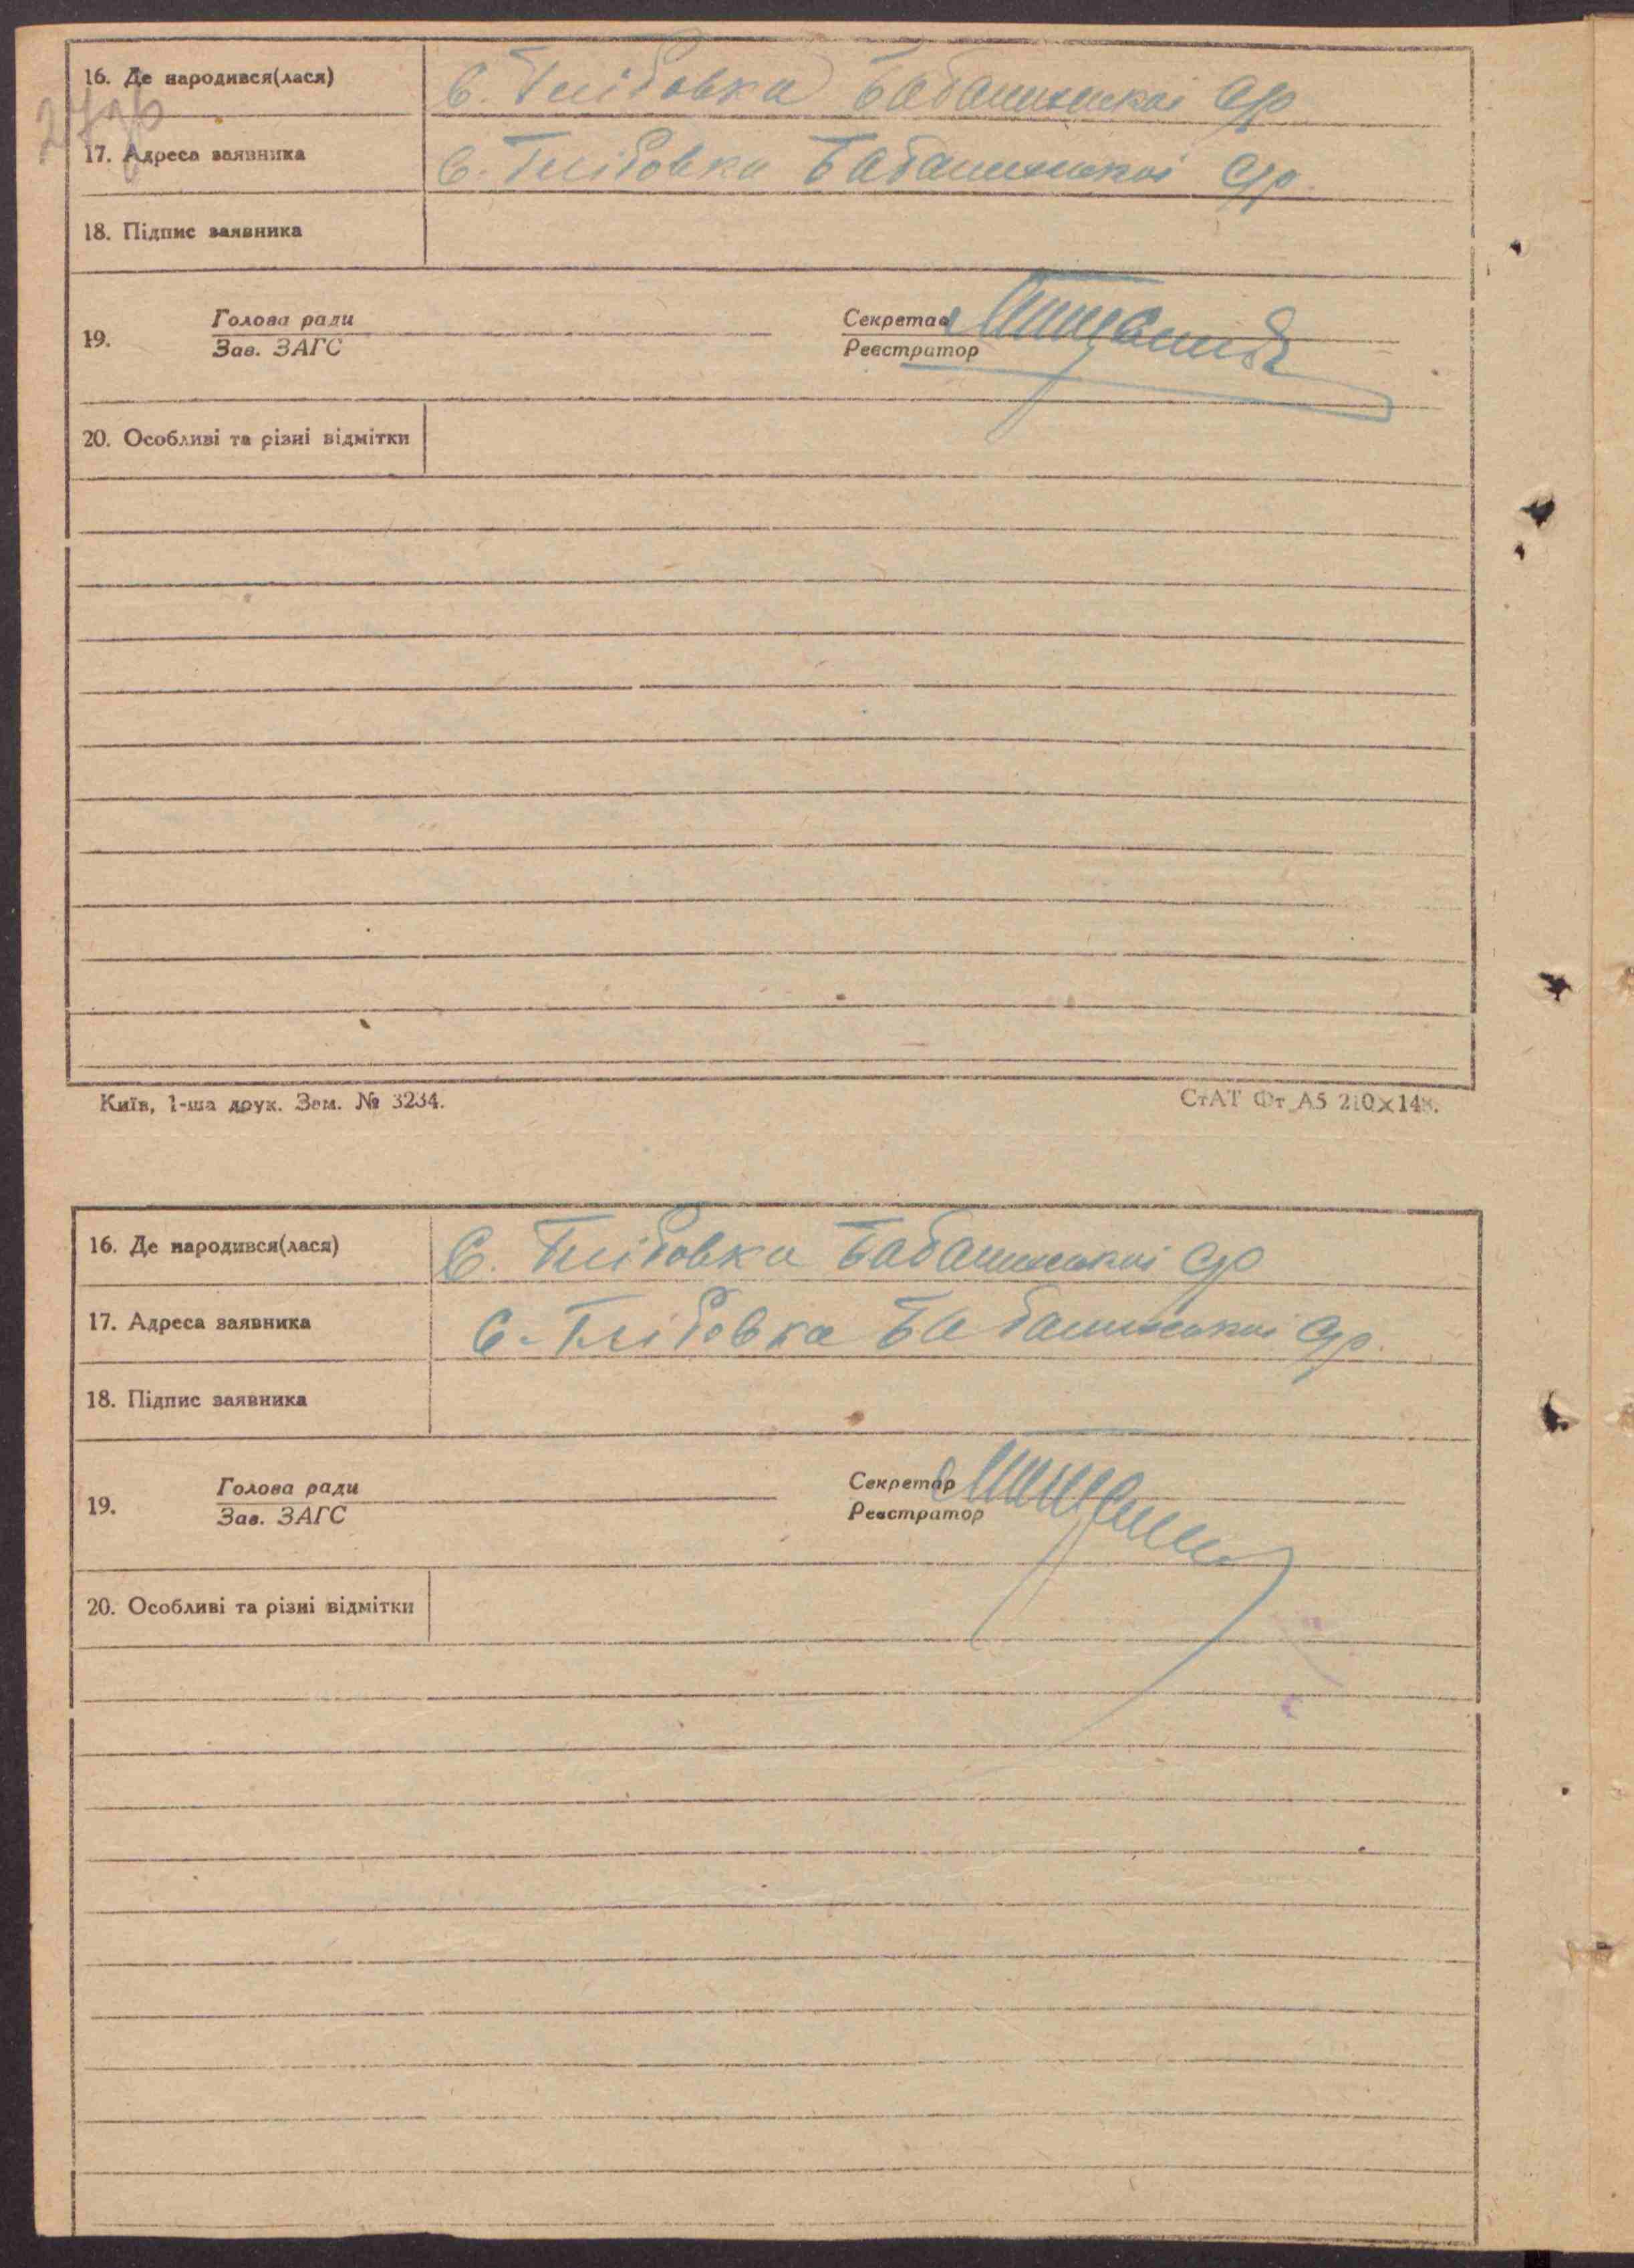 16. Де народився(лася) С. Глібовка Бабанинської с/р
17. Адреса заявника С. Глібовка Бабанинської с/р.
18. Підпис заявника
19. Голова ради Секретар
Зав. ЗАГС Реєстратор
20. Особливі та різні відмітки
Київ, 1-ша друк. Зам. № 3234. СтАТ Фт А5 210×148.
16. Де народився(лася) С. Глібовка Бабанинської с/р
17. Адреса заявника С. Глібовка Бабанинської с/р.
18. Підпис заявника
19. Голова ради Секретар
Зав. ЗАГС Реєстратор
20. Особливі та різні відмітки